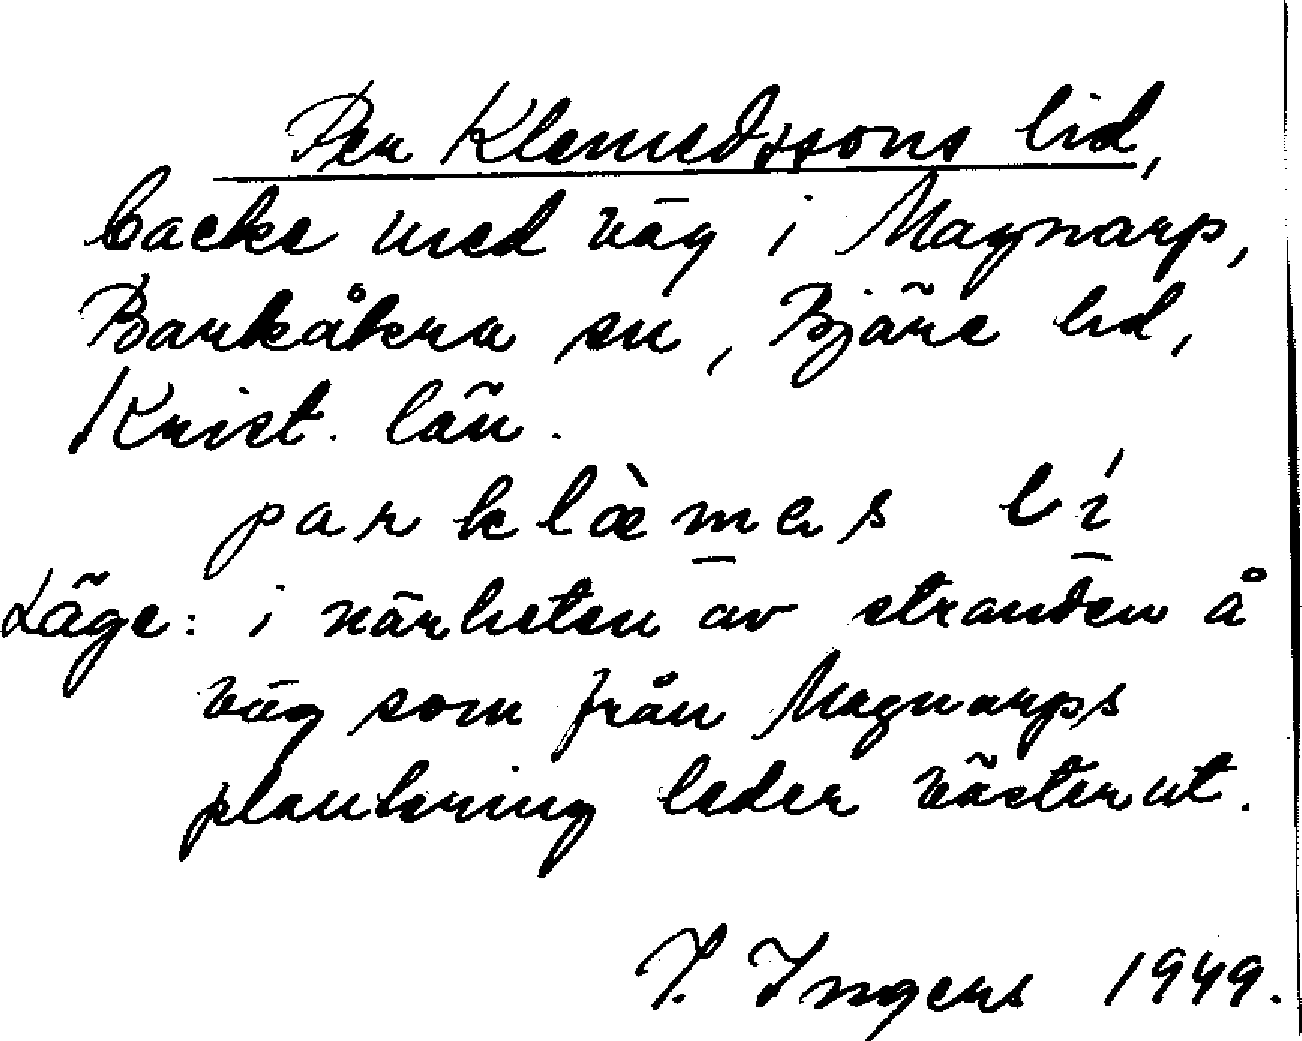 Per Klemedssons lid,
backe med väg i Magnarp,
Barkåkra sn, Bjäre hd,
Krist. län.
par klæ̀mas lí
Läge: i närheten av stranden å
väg som från Magnarps
plantering leder västerut.
I. Ingers 1949.